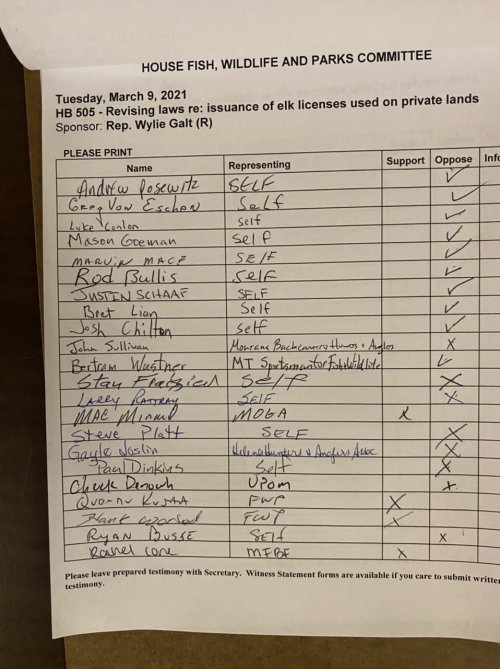 HOUSE FISH, WILDLIFE AND PARKS COMMITTEE
Tuesday, March 9, 2021
HB 505 - Revising laws re: issuance of elk licenses used on private lands
Sponsor: Rep. Wylie Galt (R)
PLEASE PRINT
Name Representing Support Oppose Info
Andrew Posewitz SELF ✓
Greg Von Eschen Self ✓
Luke Conlon self ✓
Mason Goeman Self ✓
MARVIN SELF ✓
Rod Bullis Self ✓
JUSTIN SCHAAF SELF ✓
Bret Lian Self ✓
Josh Chilton self ✓
John Sullivan Montana Backcountry Hunters + Anglers X
Bertram MT ✓
Stan Self X
LARRY SELF X
MAC Minard MOGA X
Steve Platt SELF X
Gayle Joslin Helena Hunters & Anglers Assoc X
Paul Dinkins Self X
Chuck UPOM X
FWP X
Hank Worsech FWP X
RYAN BUSSE Self X
Rachel Cone MFBF X
Please leave prepared testimony with Secretary. Witness Statement forms are available if you care to submit written
testimony.